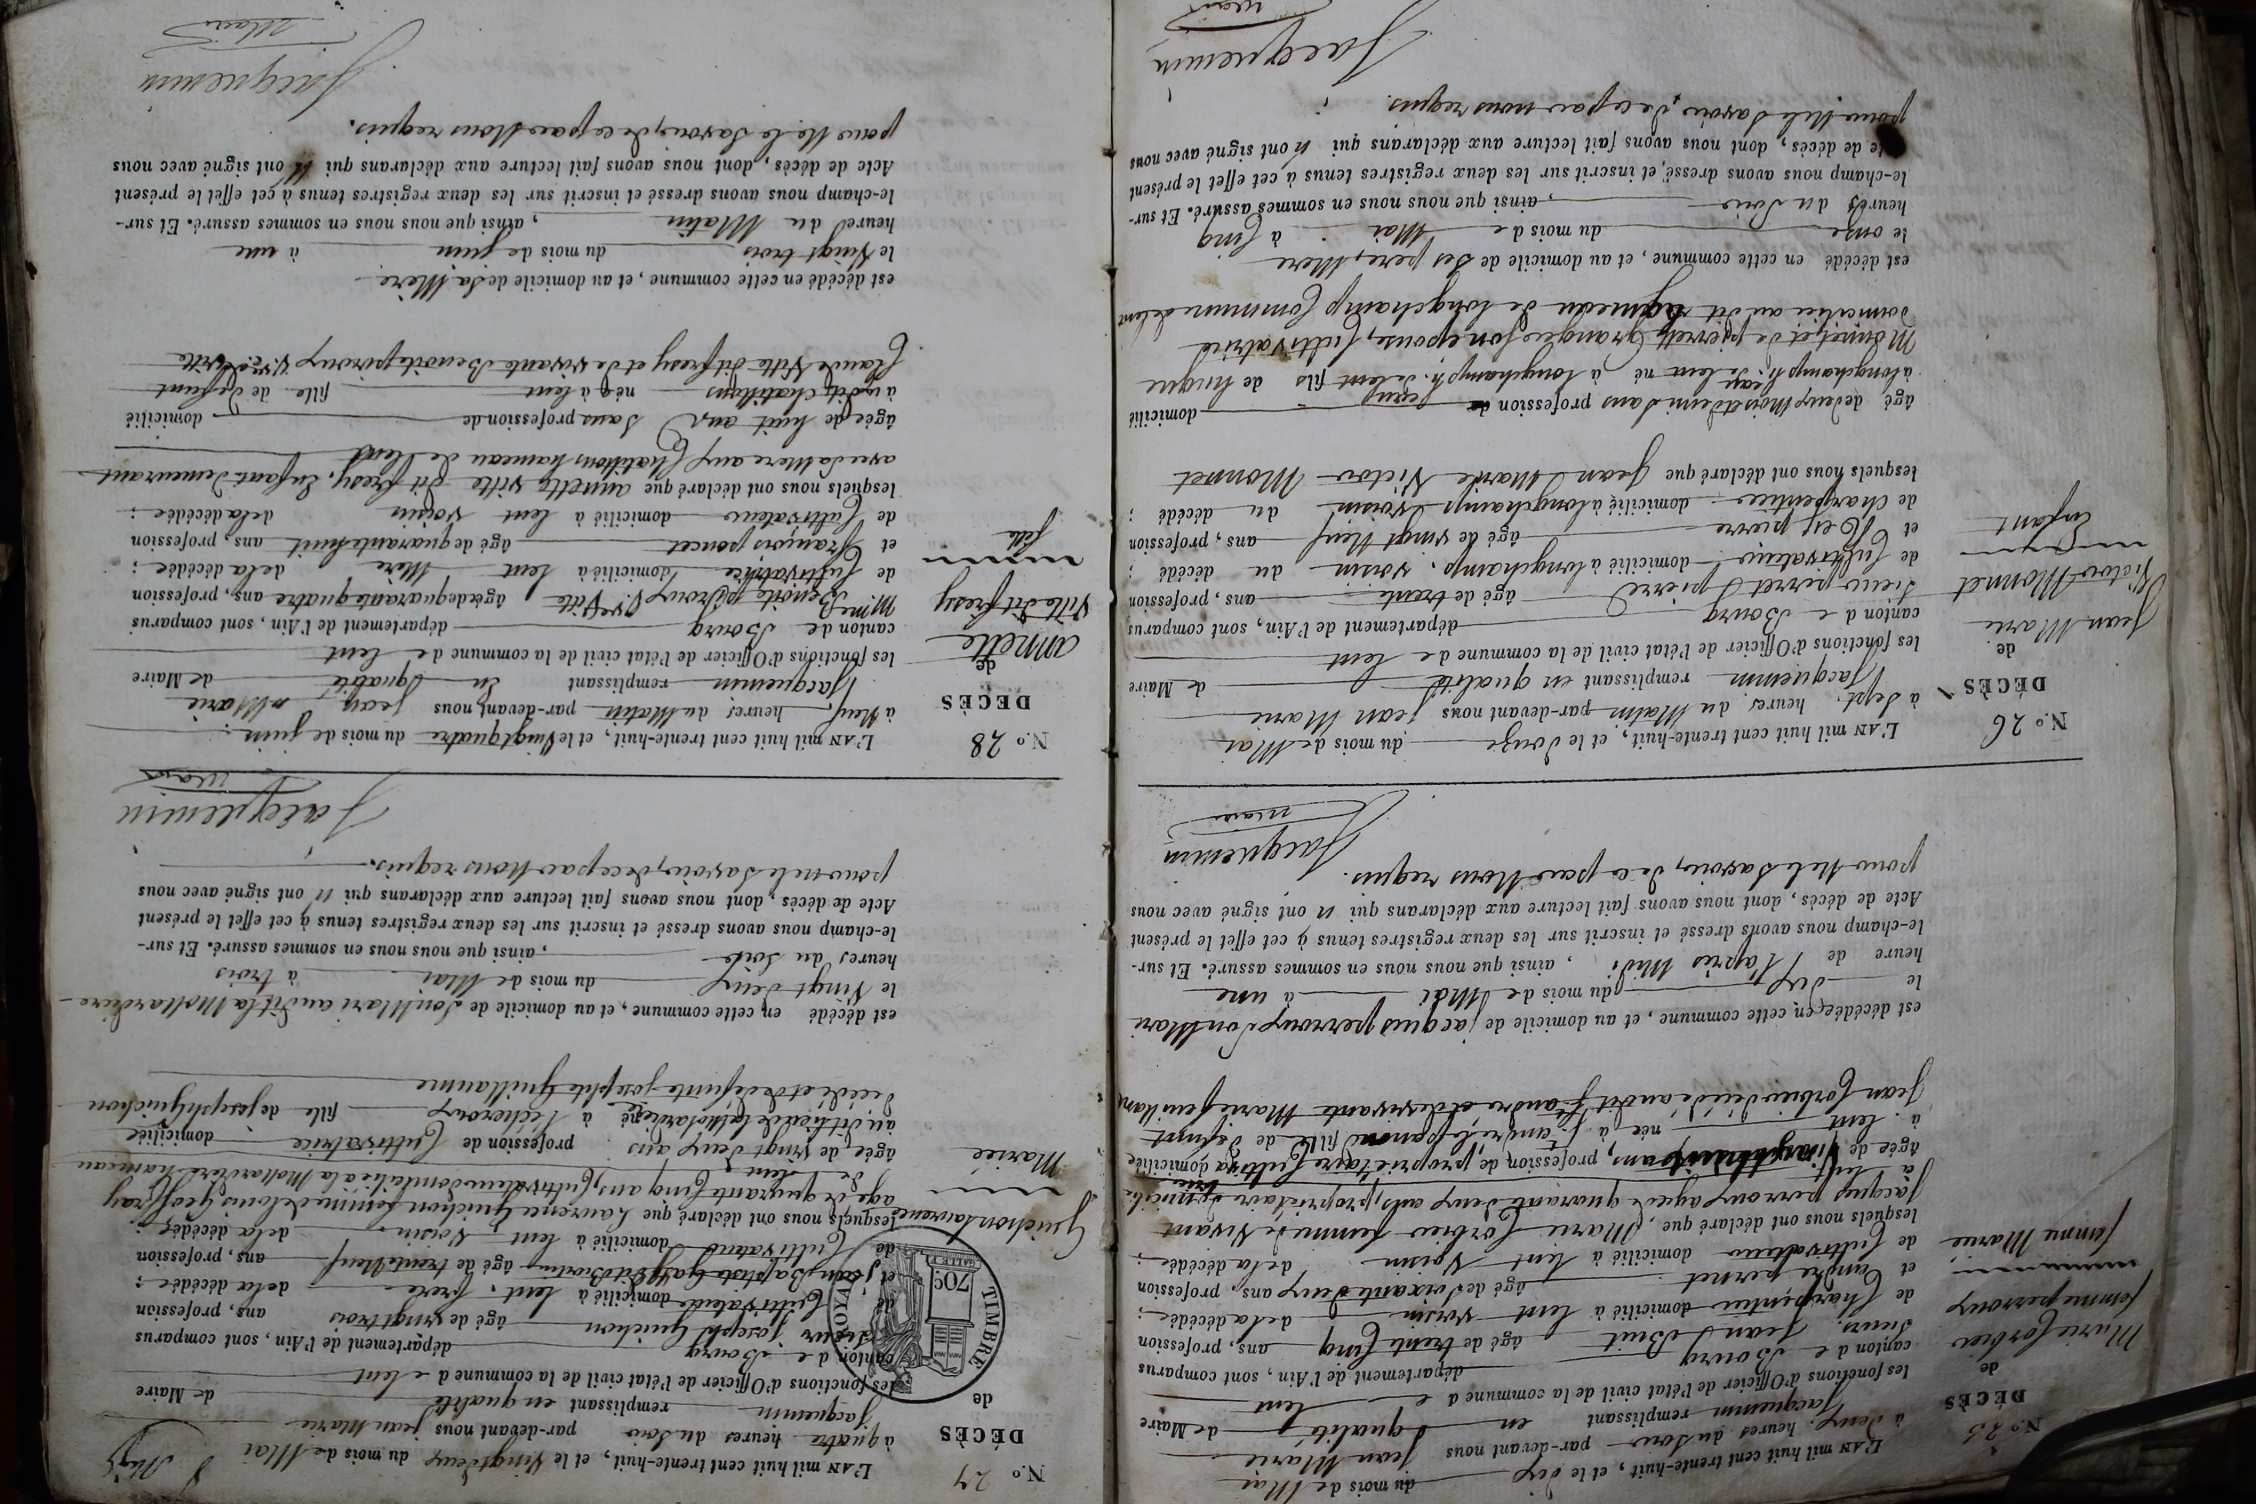 N.º 25
DÉCÈS
de
Marie Corbier
femme perroux
femme Marie
L'AN mil huit cent trente-huit, et le dix du mois de Mai
à deux heures du Soir par-devant nous Jean Marie
Jacquemin remplissant en qualité de Maire
les fonctions d'Officier de l'état civil de la commune d e lent
canton d e Bourg département de l'Ain, sont comparus
Sieurs Jean Buit âgé de trente Cinq ans, profession
de Charpentier domicilié à lent voisin de la décédée ;
et Claude pernet âgé de soixante deux ans, profession
de Cultivateur domicilié à lent Voisin de la décédée ;
lesquels nous ont déclaré que Marie Corbier femme de Vivant
jacques perroux agée de quarante deux ans, propriétaire domicilié
à lent
âgée de ans, profession de propriétaire Cultivatrice domiciliée
à lent née à St. andré le panoux fille de defunt
Jean Corbier décédé audit St. andré et de vivante Marie
est décédée en cette commune, et au domicile de jacques perroux Son Mari
le dix du mois de Mai à une
heure de l'après Midi, ainsi que nous nous en sommes assuré. Et sur-
le-champ nous avons dressé et inscrit sur les deux registres tenus à cet effet le présent
Acte de décès, dont nous avons fait lecture aux déclarans qui n ont signé avec nous
pour Ne le Savoir, de ce par Nous requis.
Jacquemin
maire
N.º 26
DÉCÈS
de
Jean Marie
Victor Monnet
Enfant
L'AN mil huit cent trente-huit, et le douze du mois de Mai
à Sept heures du Matin par-devant nous jean Marie
Jacquemin remplissant en qualité de Maire
les fonctions d'Officier de l'état civil de la commune d e lent
canton d e Bourg département de l'Ain, sont comparus
Sieur perret pierre âgé de trente ans, profession
de Cultivateur domicilié à longchamp. voisin du décédé ;
et pierre âgé de vingt Neuf ans, profession
de charpentier domicilié à longchamp voisin du décédé ;
lesquels nous ont déclaré que Jean Marie Victor Monnet
âgé de deux Mois et demi Sans profession de domicilié
à longchamp h. de lent né à longchamp h. de lent fils de hugue
Monnet et de pierrette Grangée Son epouse, Cultivatrice
domiciliée audit hameau de longchamp Commune de lent
est décédé en cette commune, et au domicile de Ses pere, Mere
le onze du mois de Mai à Cinq
heures du Soir, ainsi que nous nous en sommes assuré. Et sur-
le-champ nous avons dressé et inscrit sur les deux registres tenus à cet effet le présent
Acte de décès, dont nous avons fait lecture aux déclarans qui n ont signé avec nous
pour Ne le Savoir, de ce par nous requis.
Jacquemin
maire
N.º 27
DÉCÈS
de
Guichon Laurence
Mariée
L'AN mil huit cent trente-huit, et le Vingt deux du mois de Mai
à quatre heures du Soir par-devant nous jean Marie
Jacquemin remplissant en qualité de Maire
les fonctions d'Officier de l'état civil de la commune d e lent
canton d e Bourg département de l'Ain, sont comparus
Sieur joseph Guichon âgé de vingt trois ans, profession
de Cultivateur domicilié à lent, frere de la décédée ;
et jean Baptiste âgé de trente Neuf ans, profession
de Cultivateur domicilié à lent voisin de la décédée ;
lesquels nous ont déclaré que Laurence Guichon femme de louis Geoffray
agé de quarante Cinq ans, Cultivateur domicilié à la Mottardière hameau
de lent
âgée de vingt deux ans profession de Cultivatrice domiciliée
audit lieu de la Mottardière née à fille de joseph Guichon
decédé et de defunte josephte Guillaume
est décédé en cette commune, et au domicile de Son Mari audit la Mottardière
le Vingt deux du mois de Mai à trois
heures du Soir, ainsi que nous nous en sommes assuré. Et sur-
le-champ nous avons dressé et inscrit sur les deux registres tenus à cet effet le présent
Acte de décès, dont nous avons fait lecture aux déclarans qui n ont signé avec nous
pour ne le Savoir, de ce par Nous requis.
Jacquemin
maire
TIMBRE ROYAL
70c
N.º 28
DÉCÈS
de
annette
Vitte dit fresy
fille
L'AN mil huit cent trente-huit, et le Vingt quatre du mois de juin
à Neuf heures du Matin par-devant nous jean Marie
Jacquemin remplissant En Qualité de Maire
les fonctions d'Officier de l'état civil de la commune d e lent
canton de Bourg département de l'Ain, sont comparus
Mme Benoite piroux V.ve Vitte âgée de quarante quatre ans, profession
de Cultivatrice domicilié à lent Mere de la décédée ;
et françois poncet âgé de quarante huit ans, profession
de Cultivateur domicilié à lent voisin de la décédée ;
lesquels nous ont déclaré que annette vitte dit fresy, Enfant demeurant
avec Sa Mere aux Chatillons hameau de lent
âgée de huit ans Sans profession de domicilié
à Chatillons née à lent fille de defunt
Claude Vitte dit fresy et de vivante Benoite piroux V.ve Vitte
est décédé en cette commune, et au domicile de Sa Mère
le Vingt trois du mois de juin à une
heure du Matin, ainsi que nous nous en sommes assuré. Et sur-
le-champ nous avons dressé et inscrit sur les deux registres tenus à cet effet le présent
Acte de décès, dont nous avons fait lecture aux déclarans qui n ont signé avec nous
pour Ne le Savoir, de ce par Nous requis.
Jacquemin
Maire